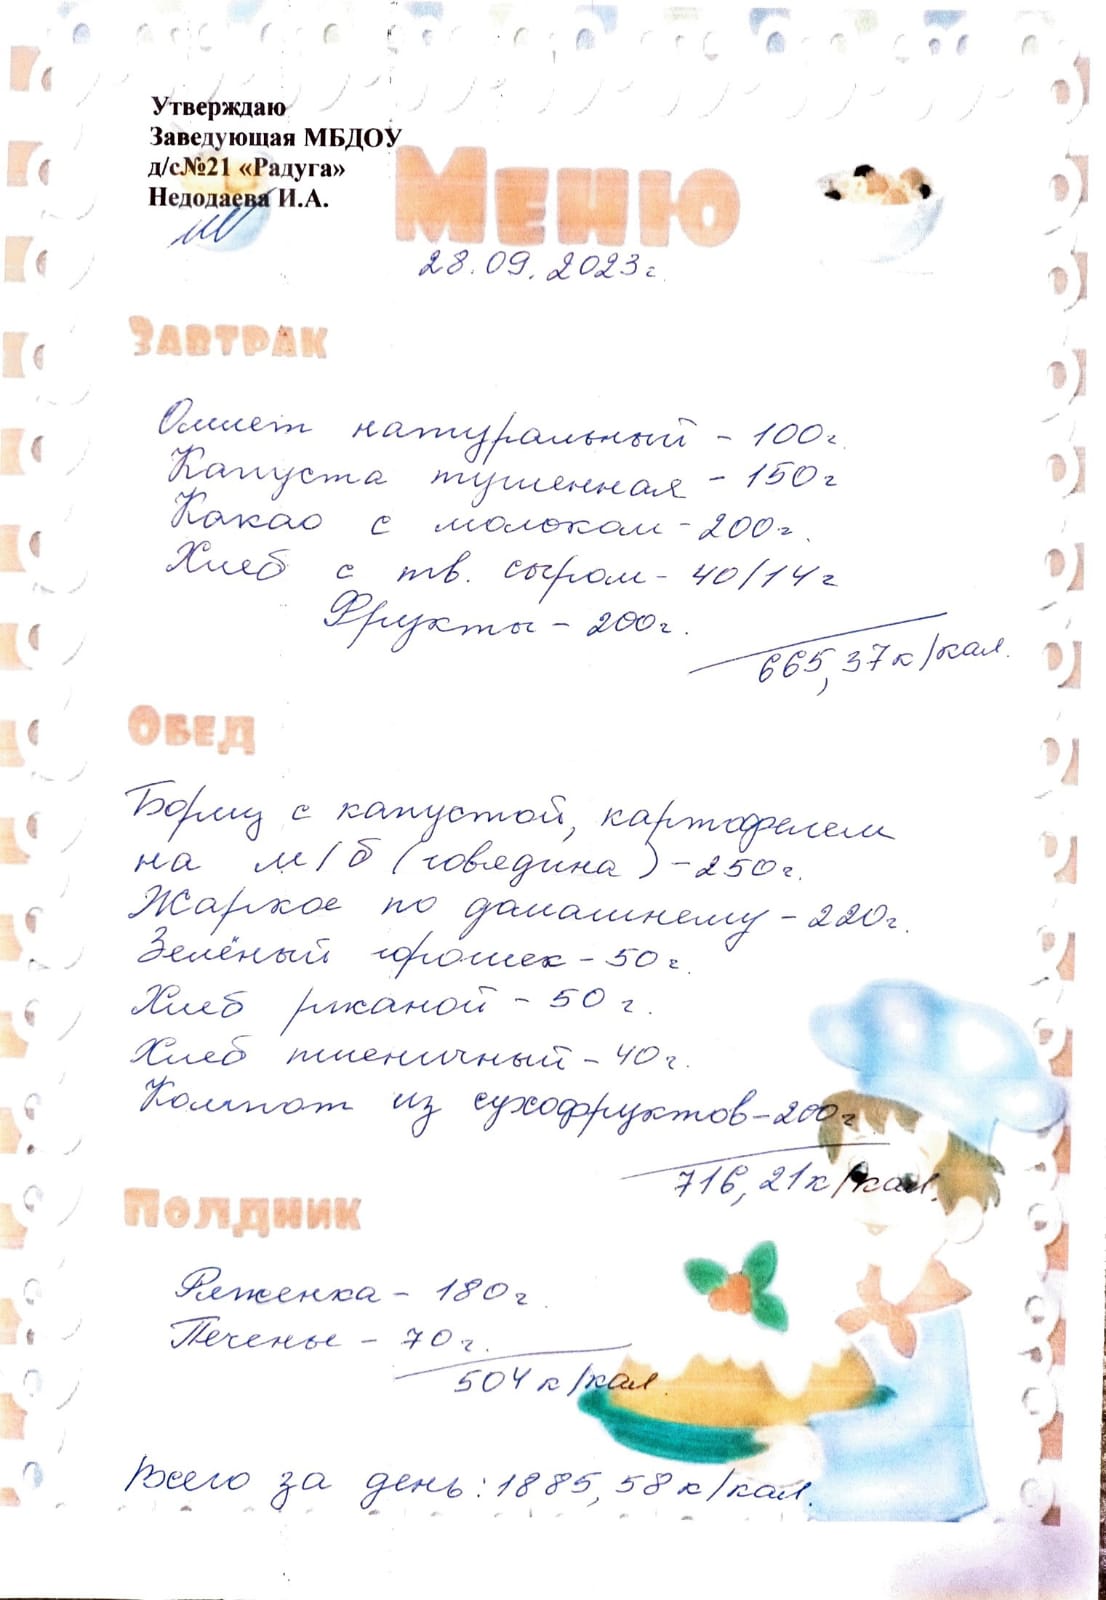 Утверждаю
Заведующая МБДОУ
д/с№21 «Радуга»
Недодаева И.А.
Меню
28.09.2023г.
Завтрак
Омлет натуральный - 100г.
Капуста тушенная - 150г
Какао с молоком - 200г.
Хлеб с тв. сыром - 40/14г
Фрукты - 200г.
665,37к/кал.
Обед
Борщ с капустой, картофелем
на м/б (говядина) - 250г.
Жаркое по домашнему - 220г.
Зелёный горошек - 50г.
Хлеб ржаной - 50г.
Хлеб пшеничный - 40г.
Компот из сухофруктов - 200г.
716,21к/кал.
Полдник
Ряженка - 180г.
Печенье - 70г.
504к/кал.
Всего за день: 1885,58к/кал.